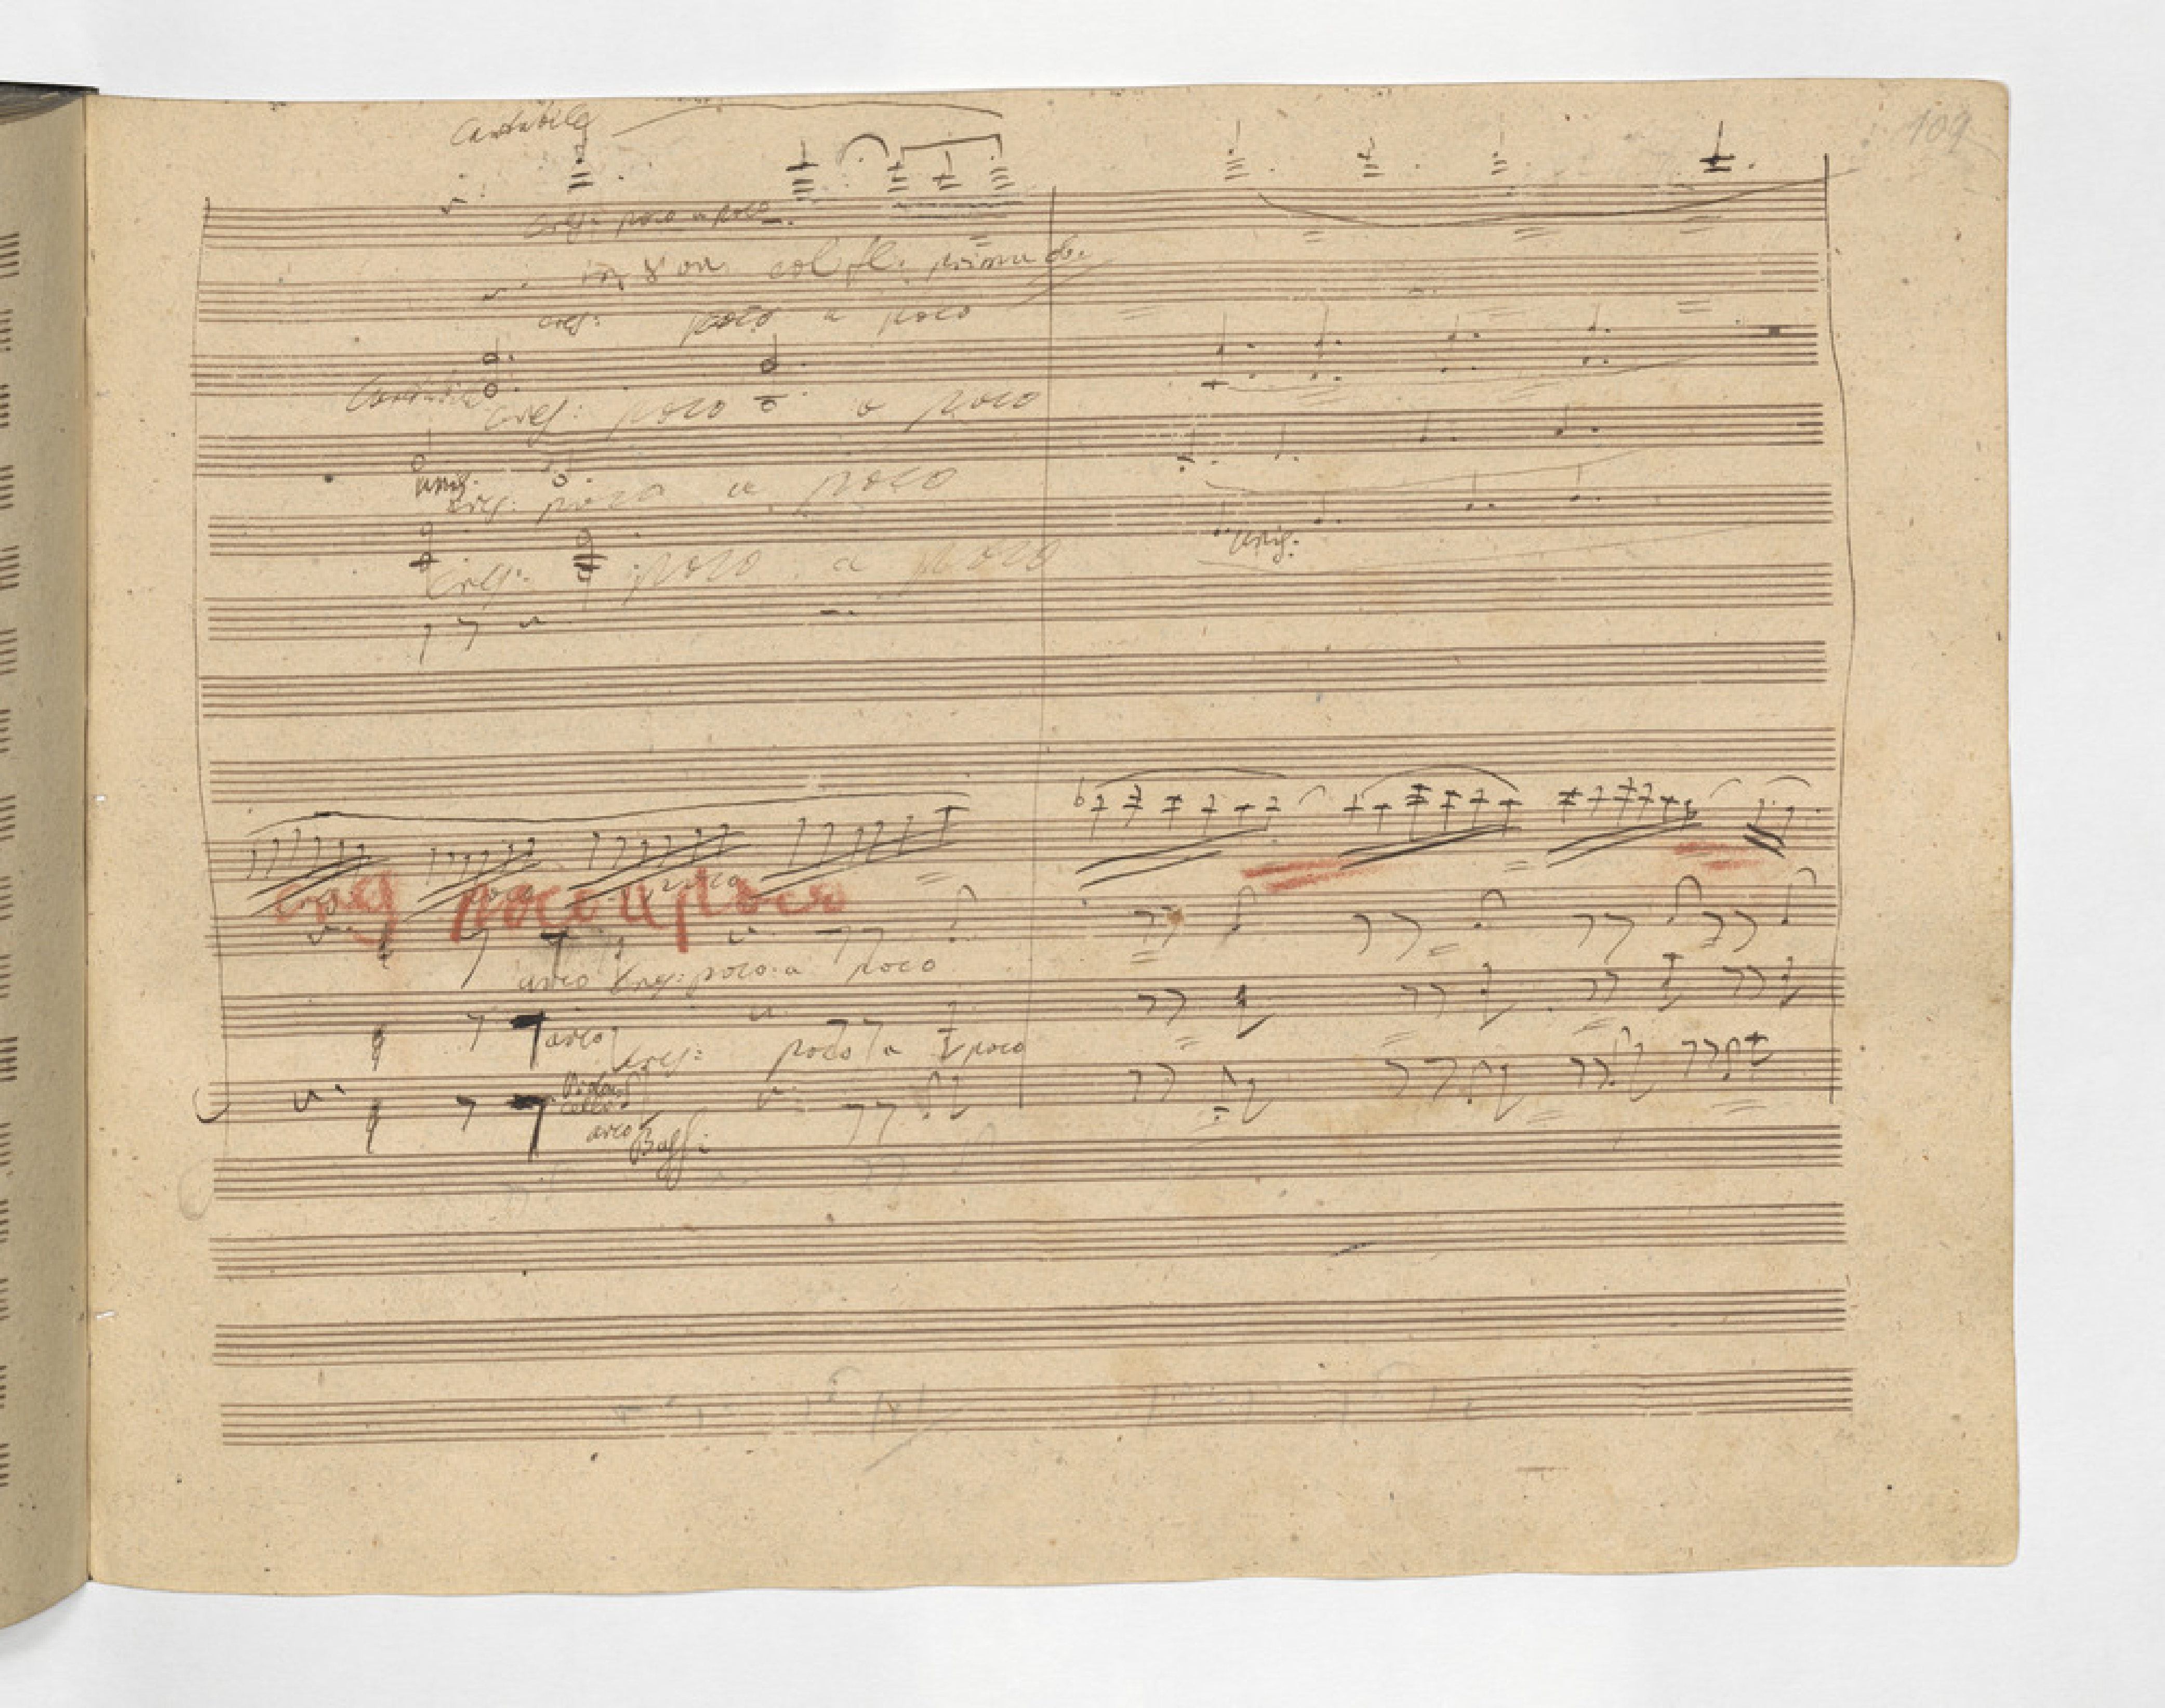 109
Cantabile
cresc: poco a poco
in 8va col fl. primo
cresc: poco a poco
Cantabile cresc: poco a poco
unis.
cresc: poco a poco
unis:
cresc: poco a poco
cresc poco a poco
arco cresc: poco a poco
arco cresc: poco a poco
Violoncello
arco Bassi